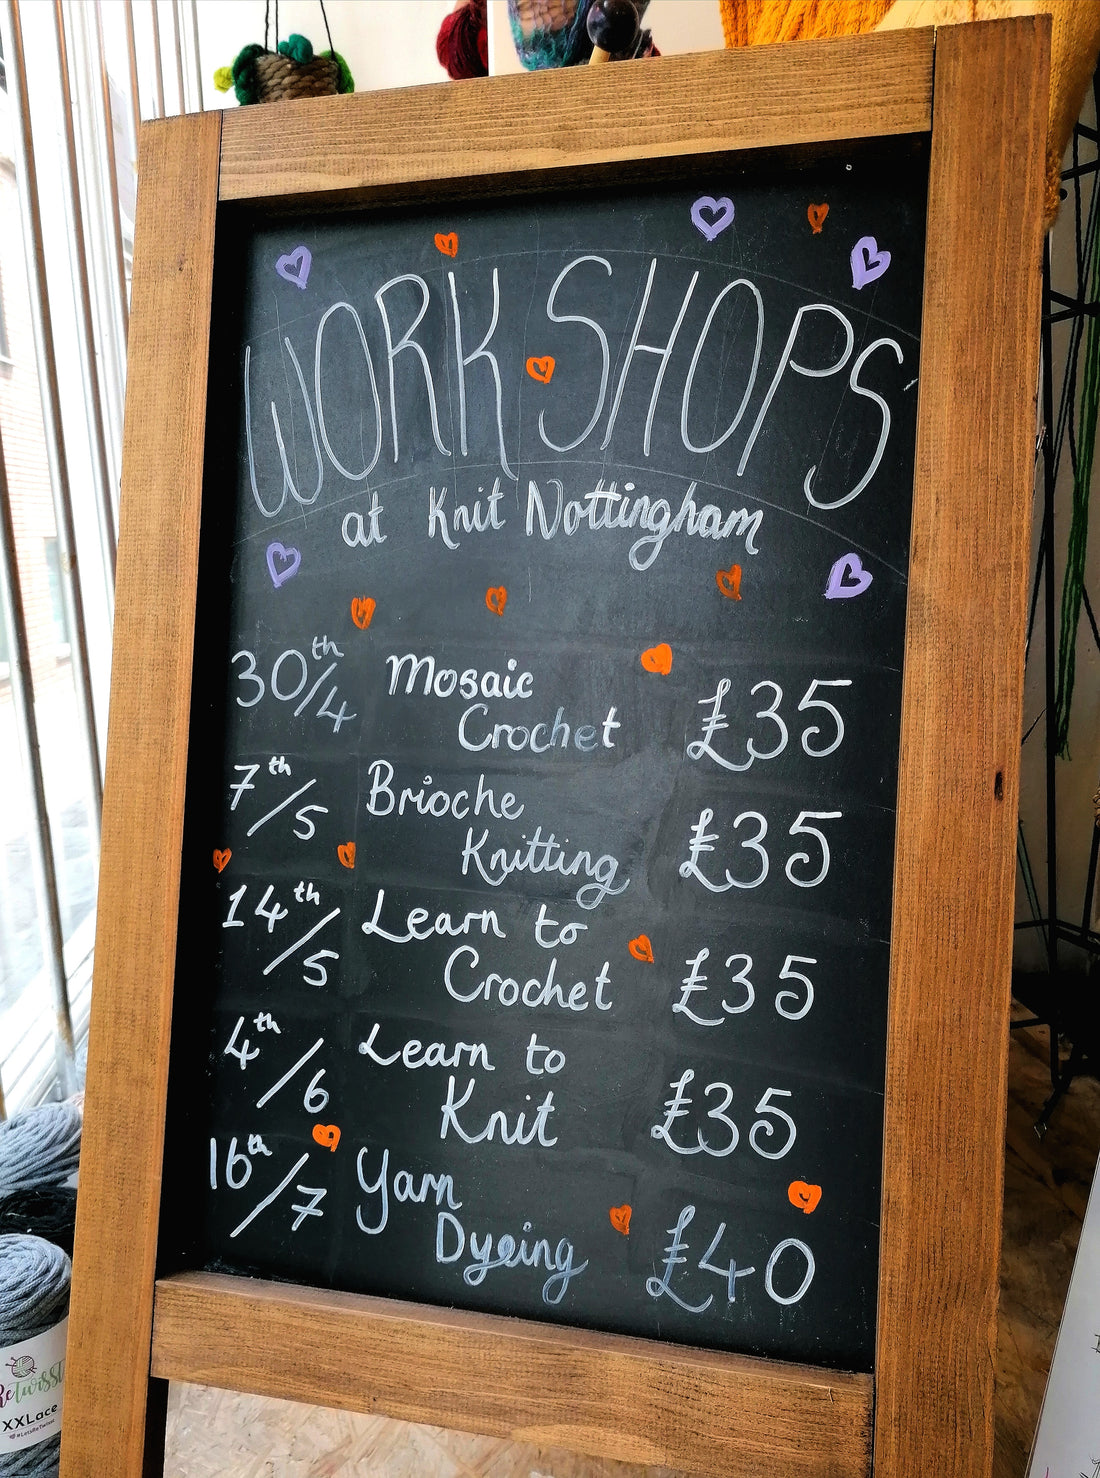 WORKSHOPS
at Knit Nottingham
30th/4 Mosaic Crochet £35
7th/5 Brioche Knitting £35
14th/5 Learn to Crochet £35
4th/6 Learn to Knit £35
16th/7 Yarn Dyeing £40
ReTwisst
XXLace
#LetsReTwisst